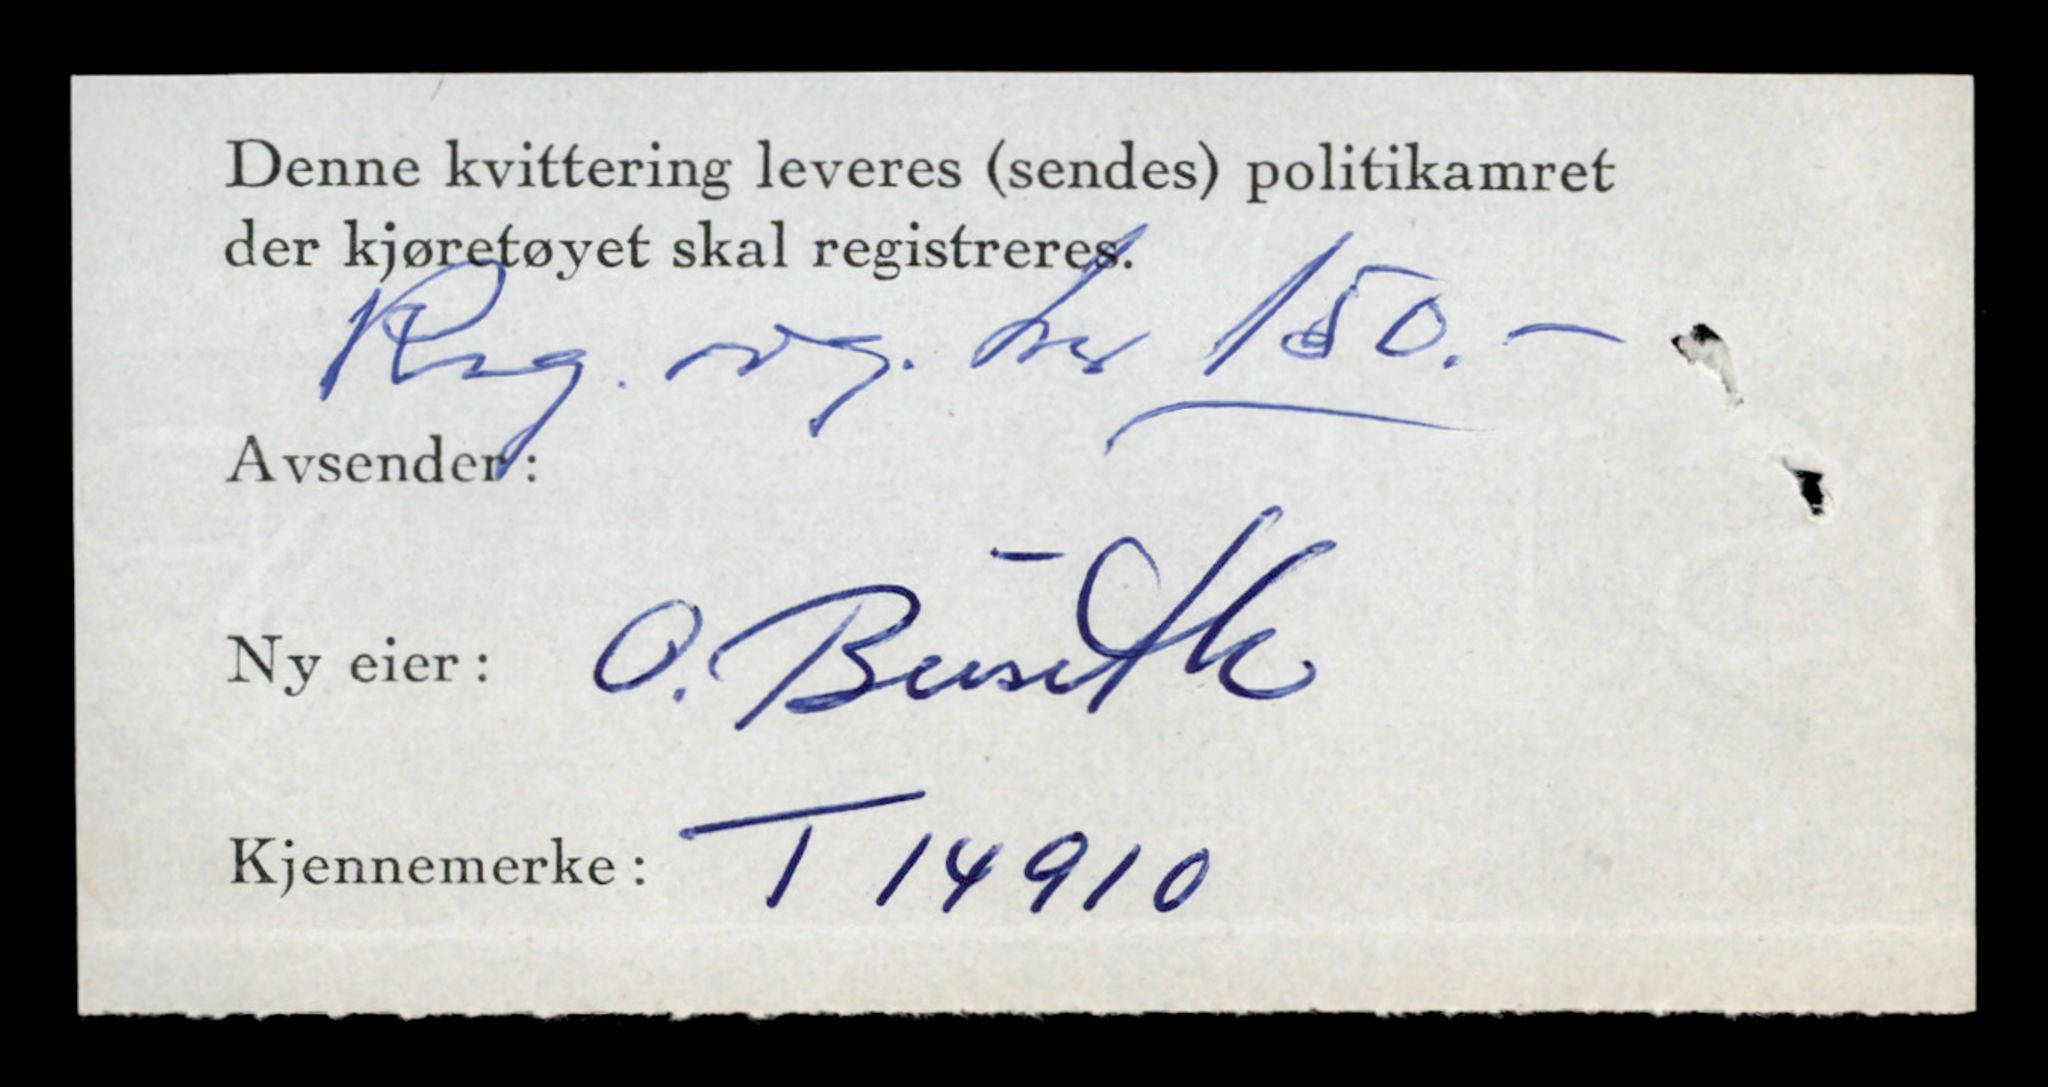 Denne kvittering leveres (sendes) politikamret
der kjøretøyet skal registreres.
Reg. avg. kr 150.-
Avsender:
Ny eier: O.
Kjennemerke: T 14910